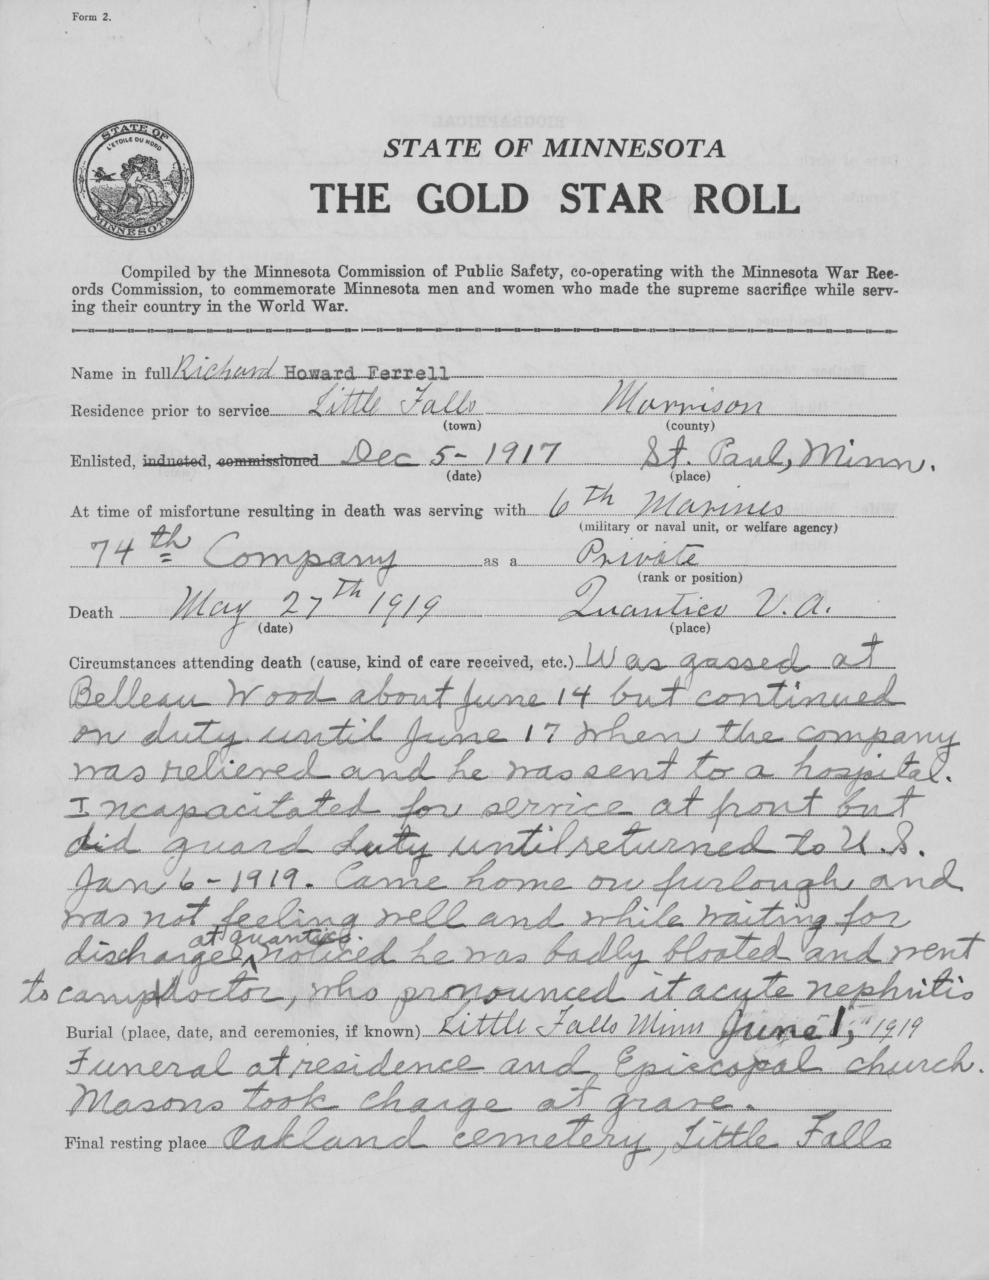 Form 2.
STATE OF
L'ETOILE DU NORD
MINNESOTA
STATE OF MINNESOTA
THE GOLD STAR ROLL
Compiled by the Minnesota Commission of Public Safety, co-operating with the Minnesota War Rec-
ords Commission, to commemorate Minnesota men and women who made the supreme sacrifice while serv-
ing their country in the World War.
Name in full Richard Howard Ferrell
Residence prior to service Little Falls Morrison
(town) (county)
Enlisted, inducted, commissioned Dec 5- 1917 St. Paul, Minn.
(date) (place)
At time of misfortune resulting in death was serving with 6th Marines
(military or naval unit, or welfare agency)
74th Company as a Private
(rank or position)
Death May 27th 1919 Quantico V.A.
(date) (place)
Circumstances attending death (cause, kind of care received, etc.) Was gassed at
Belleau Wood about June 14 but continued
on duty until June 17 when the company
was relieved and he was sent to a hospital.
Incapacitated for service at front but
did guard duty until returned to U.S.
Jan 6-1919. Came home on furlough and
was not feeling well and while waiting for
at quantico.
discharge noticed he was badly bloated and went
to camp doctor, who pronounced it acute nephritis
Burial (place, date, and ceremonies, if known) Little Falls Minn June 1, 1919
Funeral at residence and Episcopal church.
Masons took charge at grave.
Final resting place Oakland cemetery, Little Falls